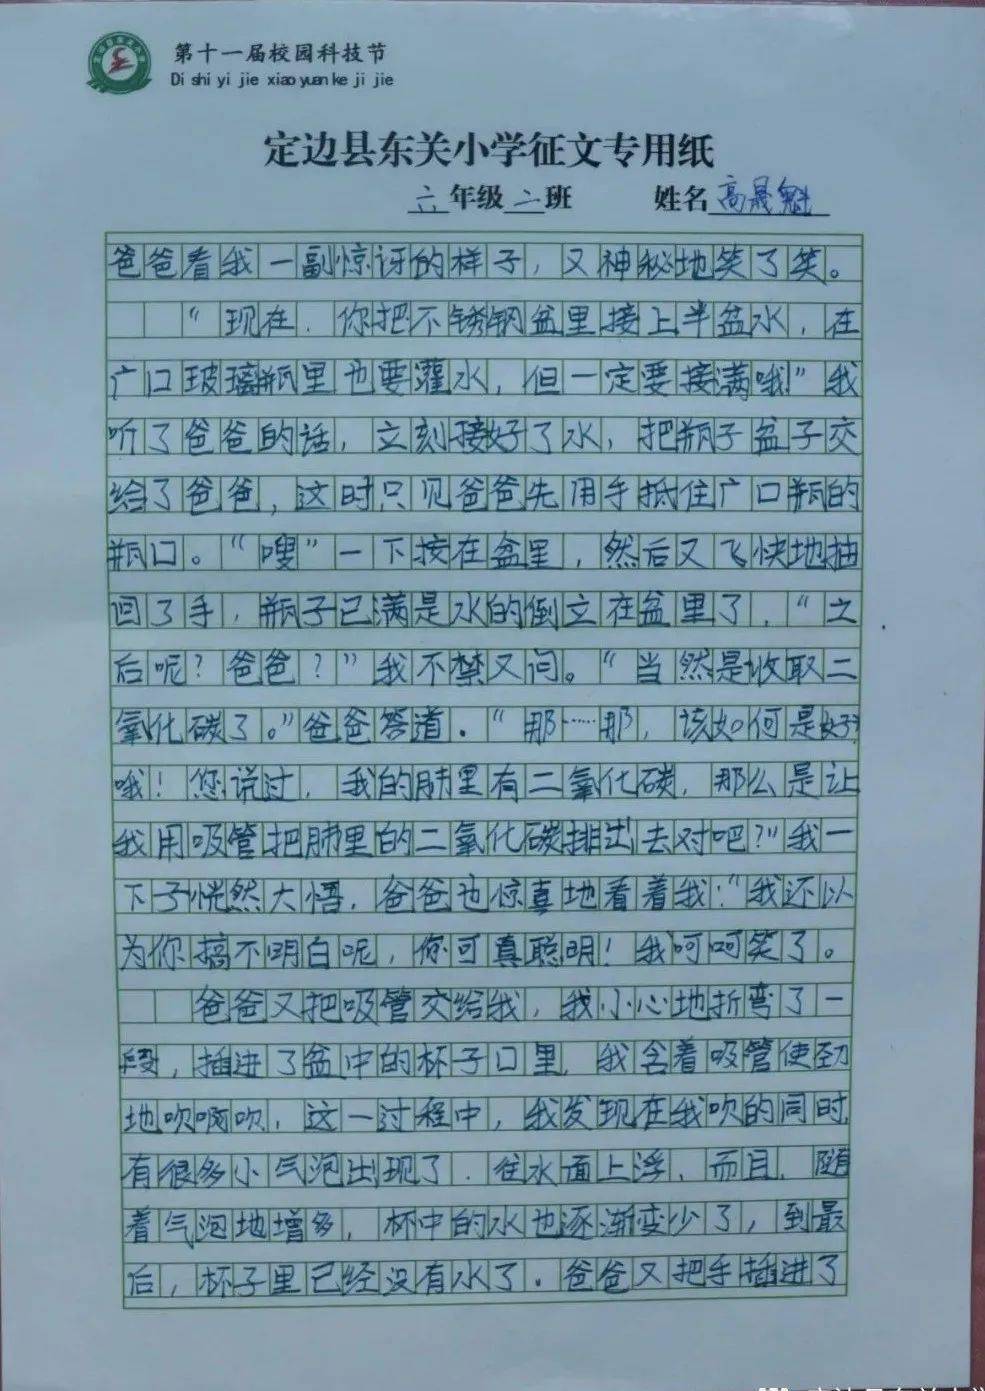 第十一届校园科技节
Di shi yi jie xiao yuan ke ji jie
定边县东关小学征文专用纸
六年级二班 姓名高晟魁
爸爸看我一副惊讶的样子，又神秘地笑了笑。
“现在，你把不锈钢盆里接上半盆水，在
广口玻璃瓶里也要灌水，但一定要接满哦!”我
听了爸爸的话，立刻接好了水，把瓶子盆子交
给了爸爸，这时只见爸爸先用手抵住广口瓶的
瓶口。“嗖”一下按在盆里，然后又飞快地抽
回了手，瓶子已满是水的倒立在盆里了，“之
后呢？爸爸？”我不禁又问。“当然是收取二
氧化碳了。”爸爸答道．“那……那，该如何是好
哦！您说过，我的肺里有二氧化碳，那么是让
我用吸管把肺里的二氧化碳排出去对吧？”我一
下子恍然大悟，爸爸也惊喜地看着我：“我还以
为你搞不明白呢，你可真聪明！我呵呵笑了。
爸爸又把吸管交给我，我小心地折弯了一
段，插进了盆中的杯子口里，我含着吸管使劲
地吹啊吹，这一过程中，我发现在我吹的同时，
有很多小气泡出现了．往水面上浮，而且，随
着气泡地增多，杯中的水也逐渐变少了，到最
后，杯子里已经没有水了．爸爸又把手插进了